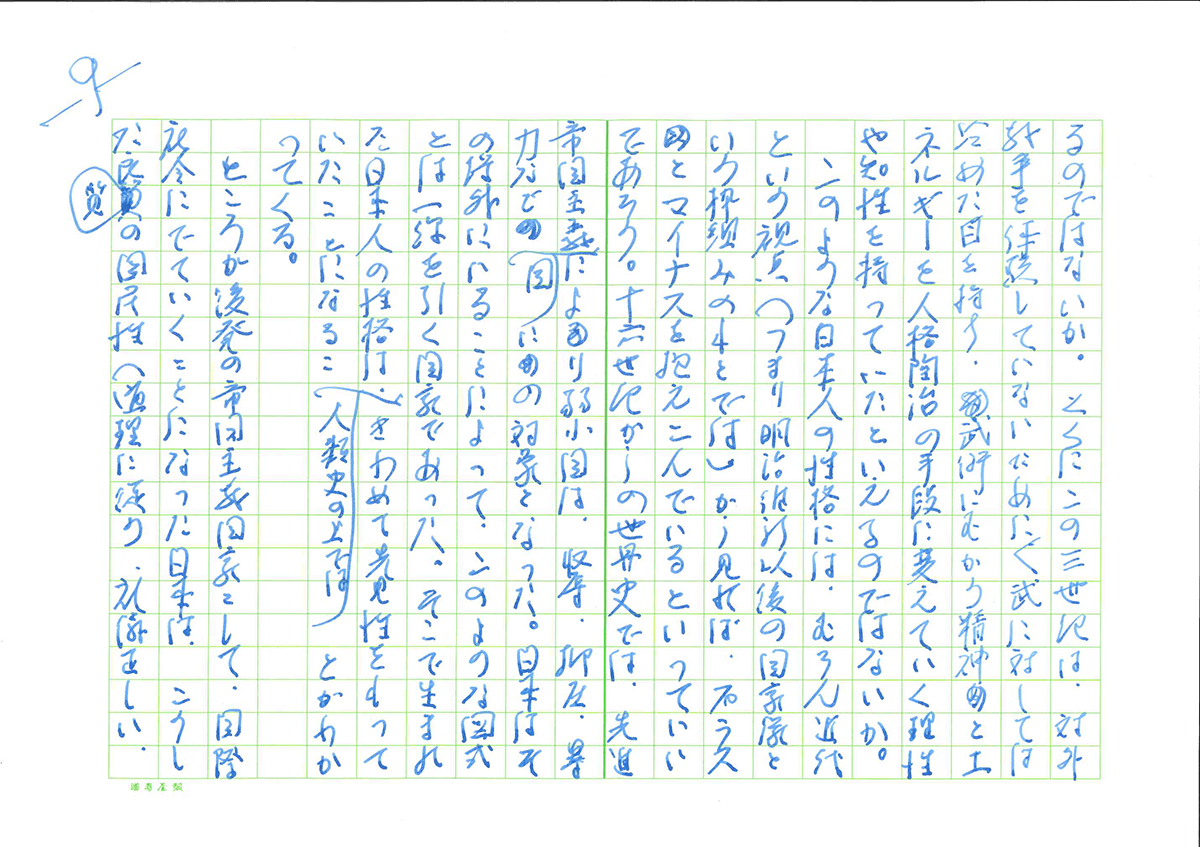 9
るのではないか。とくにこの三世紀は、対外
戦争を経験していないだめに、武に対しては
冷めた目を持ち、武術にむかう精神とエ
ネルギーを人格陶冶の手段に変えていく理性
や知性を持っていたといえるのではないか。
このような日本人の性格には、むろん近代
といの視点(つまり明治維新以後の国家像と
いう枠組みのもとでは)から見れば、プラス
とマイナスを抱えこんでいるといっていい
であろう。十六世紀からの世界史では、先進
帝国主義により弱小国は、収奪、抑圧、暴
力などの図にの対象となった。日本はそ
の埒外にいることによって、このような図式
とは一線を引く国家であった。そこで生まれ
た日本人の性格は、きわめて先見性をもって
いたことになるこ(人類史の上では)とがわか
ってくる。
ところが後発の帝国主義国家として、国際
社会にでていくことになった日本は、こうし
た民質の国民性(道理に従う、礼儀正しい、
質
満寿屋製